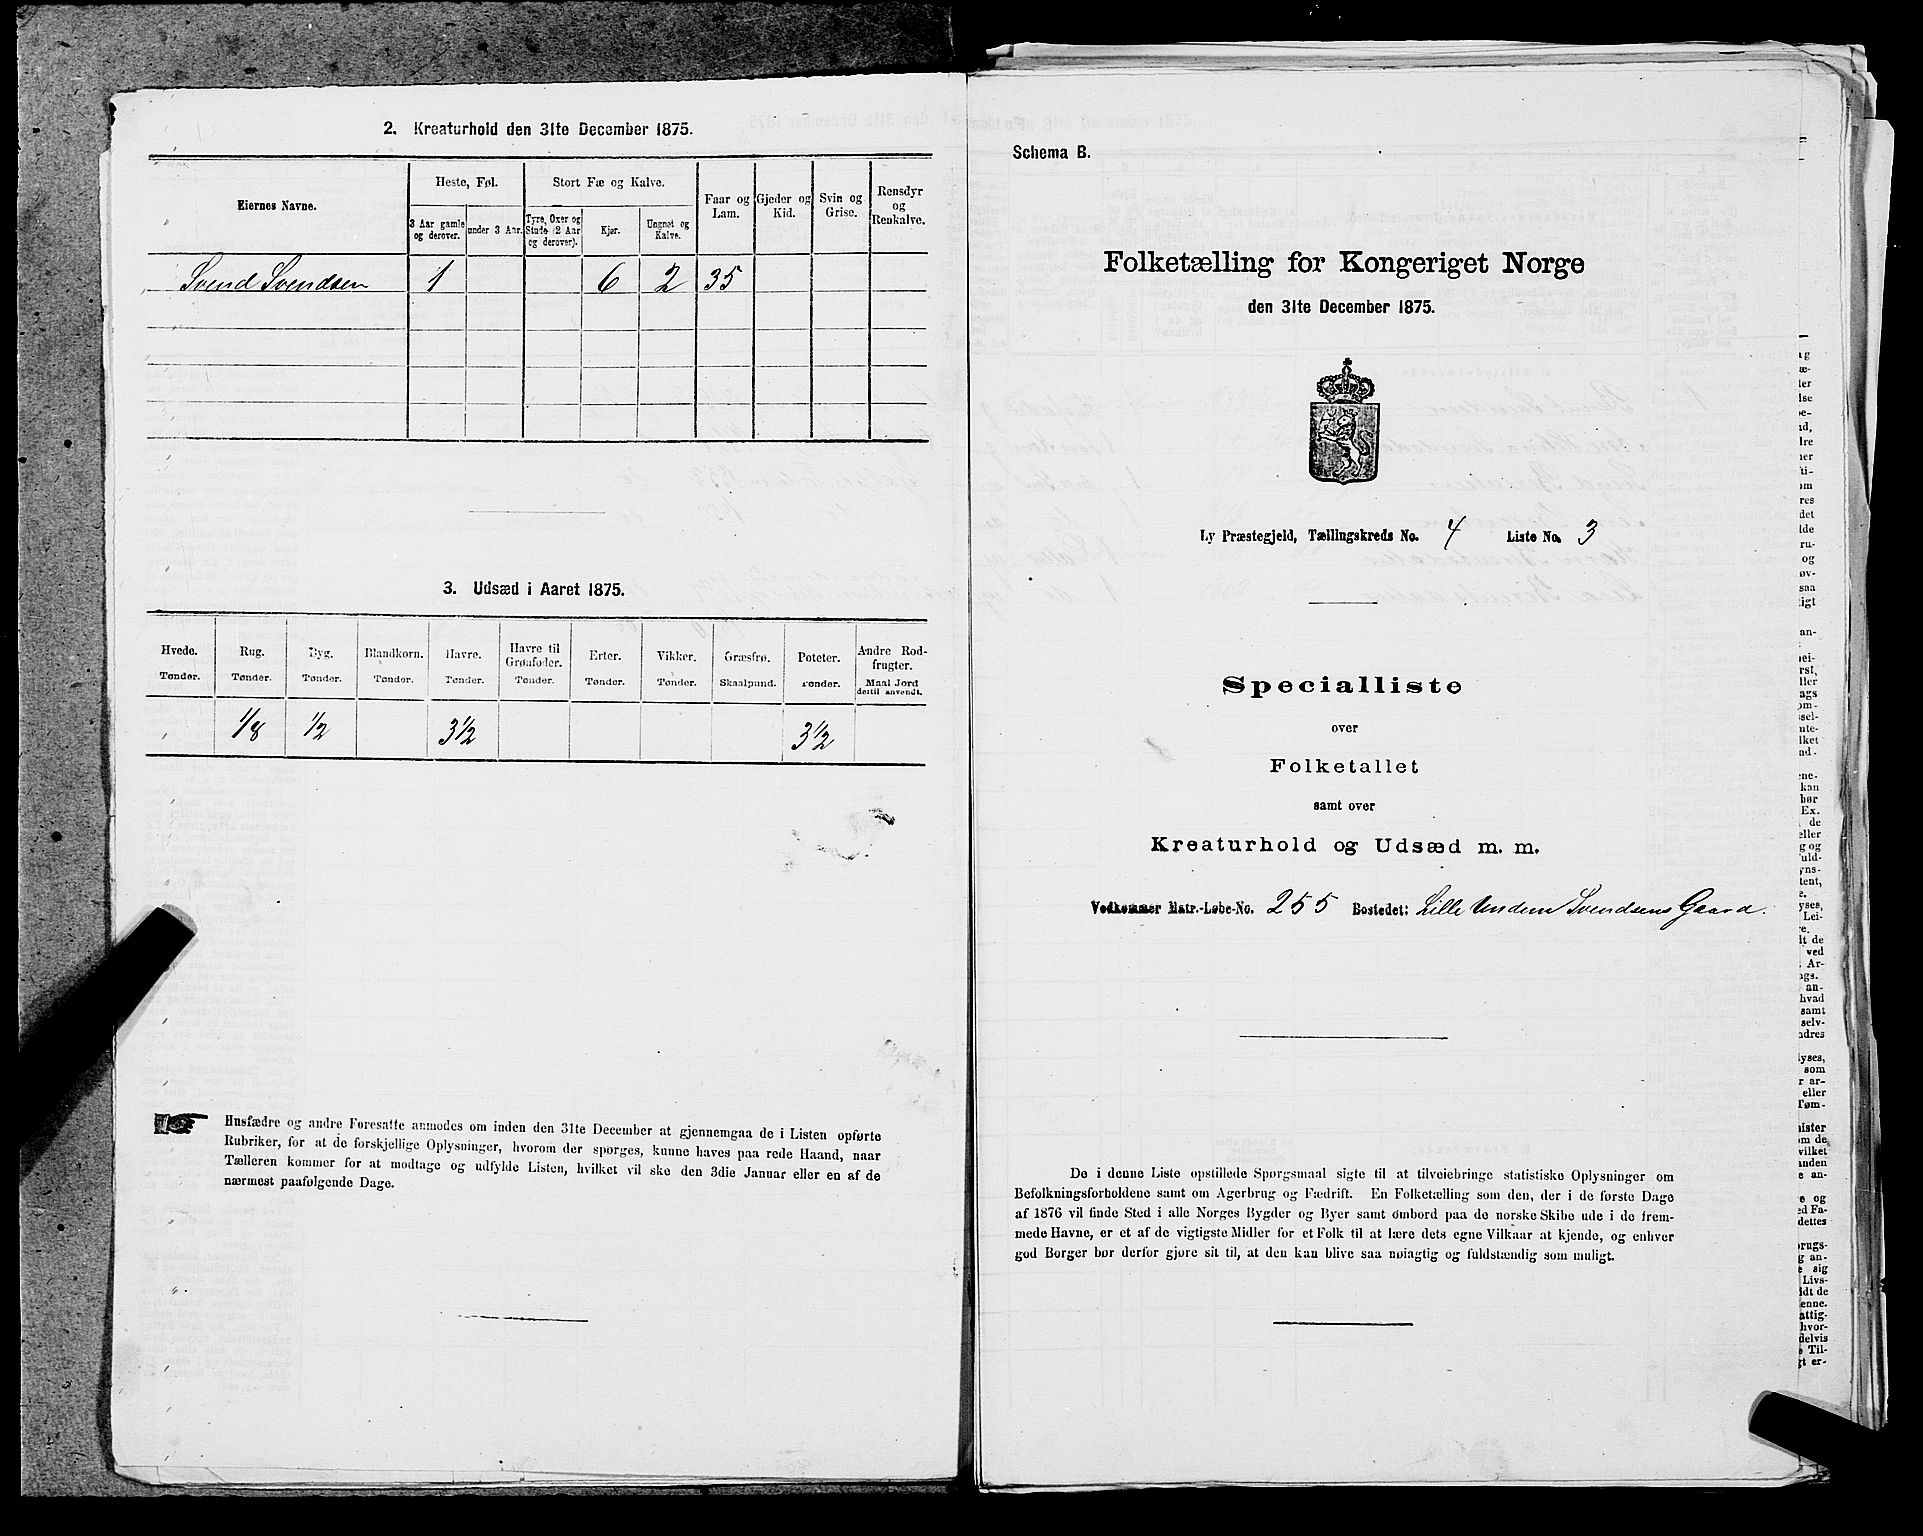 2. Kreaturhold den 31te December 1875.
Eiernes Navne.
Heste, Føl.
Stort Fæ og Kalve.
Faar og
Lam.
Gjeder og
Kid.
Svin og
Grise.
Rensdyr
og
Renkalve.
3 Aar gamle
og derover.
under 3 Aar.
Tyre, Oxer og
Stude (2 Aar
og derover).
Kjør.
Ungnøt og
Kalve.
Svend Svendsen 1 6 2 35
3. Udsæd i Aaret 1875.
Hvede.
Tønder.
Rug.
Tønder.
Byg.
Tønder.
Blandkorn.
Tønder.
Havre.
Tønder.
Havre til
Grønfoder.
Tønder.
Erter.
Tønder.
Vikker.
Tønder.
Græsfrø.
Skaalpund.
Poteter.
Tønder.
Andre Rod-
frugter.
Maal Jord
dertil anvendt.
1/8 1/2 3 1/2 3 1/2
Husfædre og andre Foresatte anmodes om inden den 31te December at gjennemgaa de i Listen opførte
Rubriker, for at de forskjellige Oplysninger, hvorom der spørges, kunne haves paa rede Haand, naar
Tælleren kommer for at modtage og udfylde Listen, hvilket vil ske den 3die Januar eller en af de
nærmest paafølgende Dage.
Schema B.
Folketælling for Kongeriget Norge
den 31te December 1875.
Ly Præstegjeld, Tællingskreds No. 4 Liste No. 3
Specialliste
over
Folketallet
samt over
Kreaturhold og Udsæd m. m.
Vedkommer Matr.-Løbe-No. 255 Bostedet: Lille Undem Svendsens Gaard.
De i denne Liste opstillede Spørgsmaal sigte til at tilveiebringe statistiske Oplysninger om
Befolkningsforholdene samt om Agerbrug og Fædrift. En Folketælling som den, der i de første Dage
af 1876 vil finde Sted i alle Norges Bygder og Byer samt ombord paa de norske Skibe ude i de frem-
mede Havne, er et af de vigtigste Midler for et Folk til at lære dets egne Vilkaar at kjende, og enhver
god Borger bør derfor gjøre sit til, at den kan blive saa nøiagtig og fuldstændig som muligt.